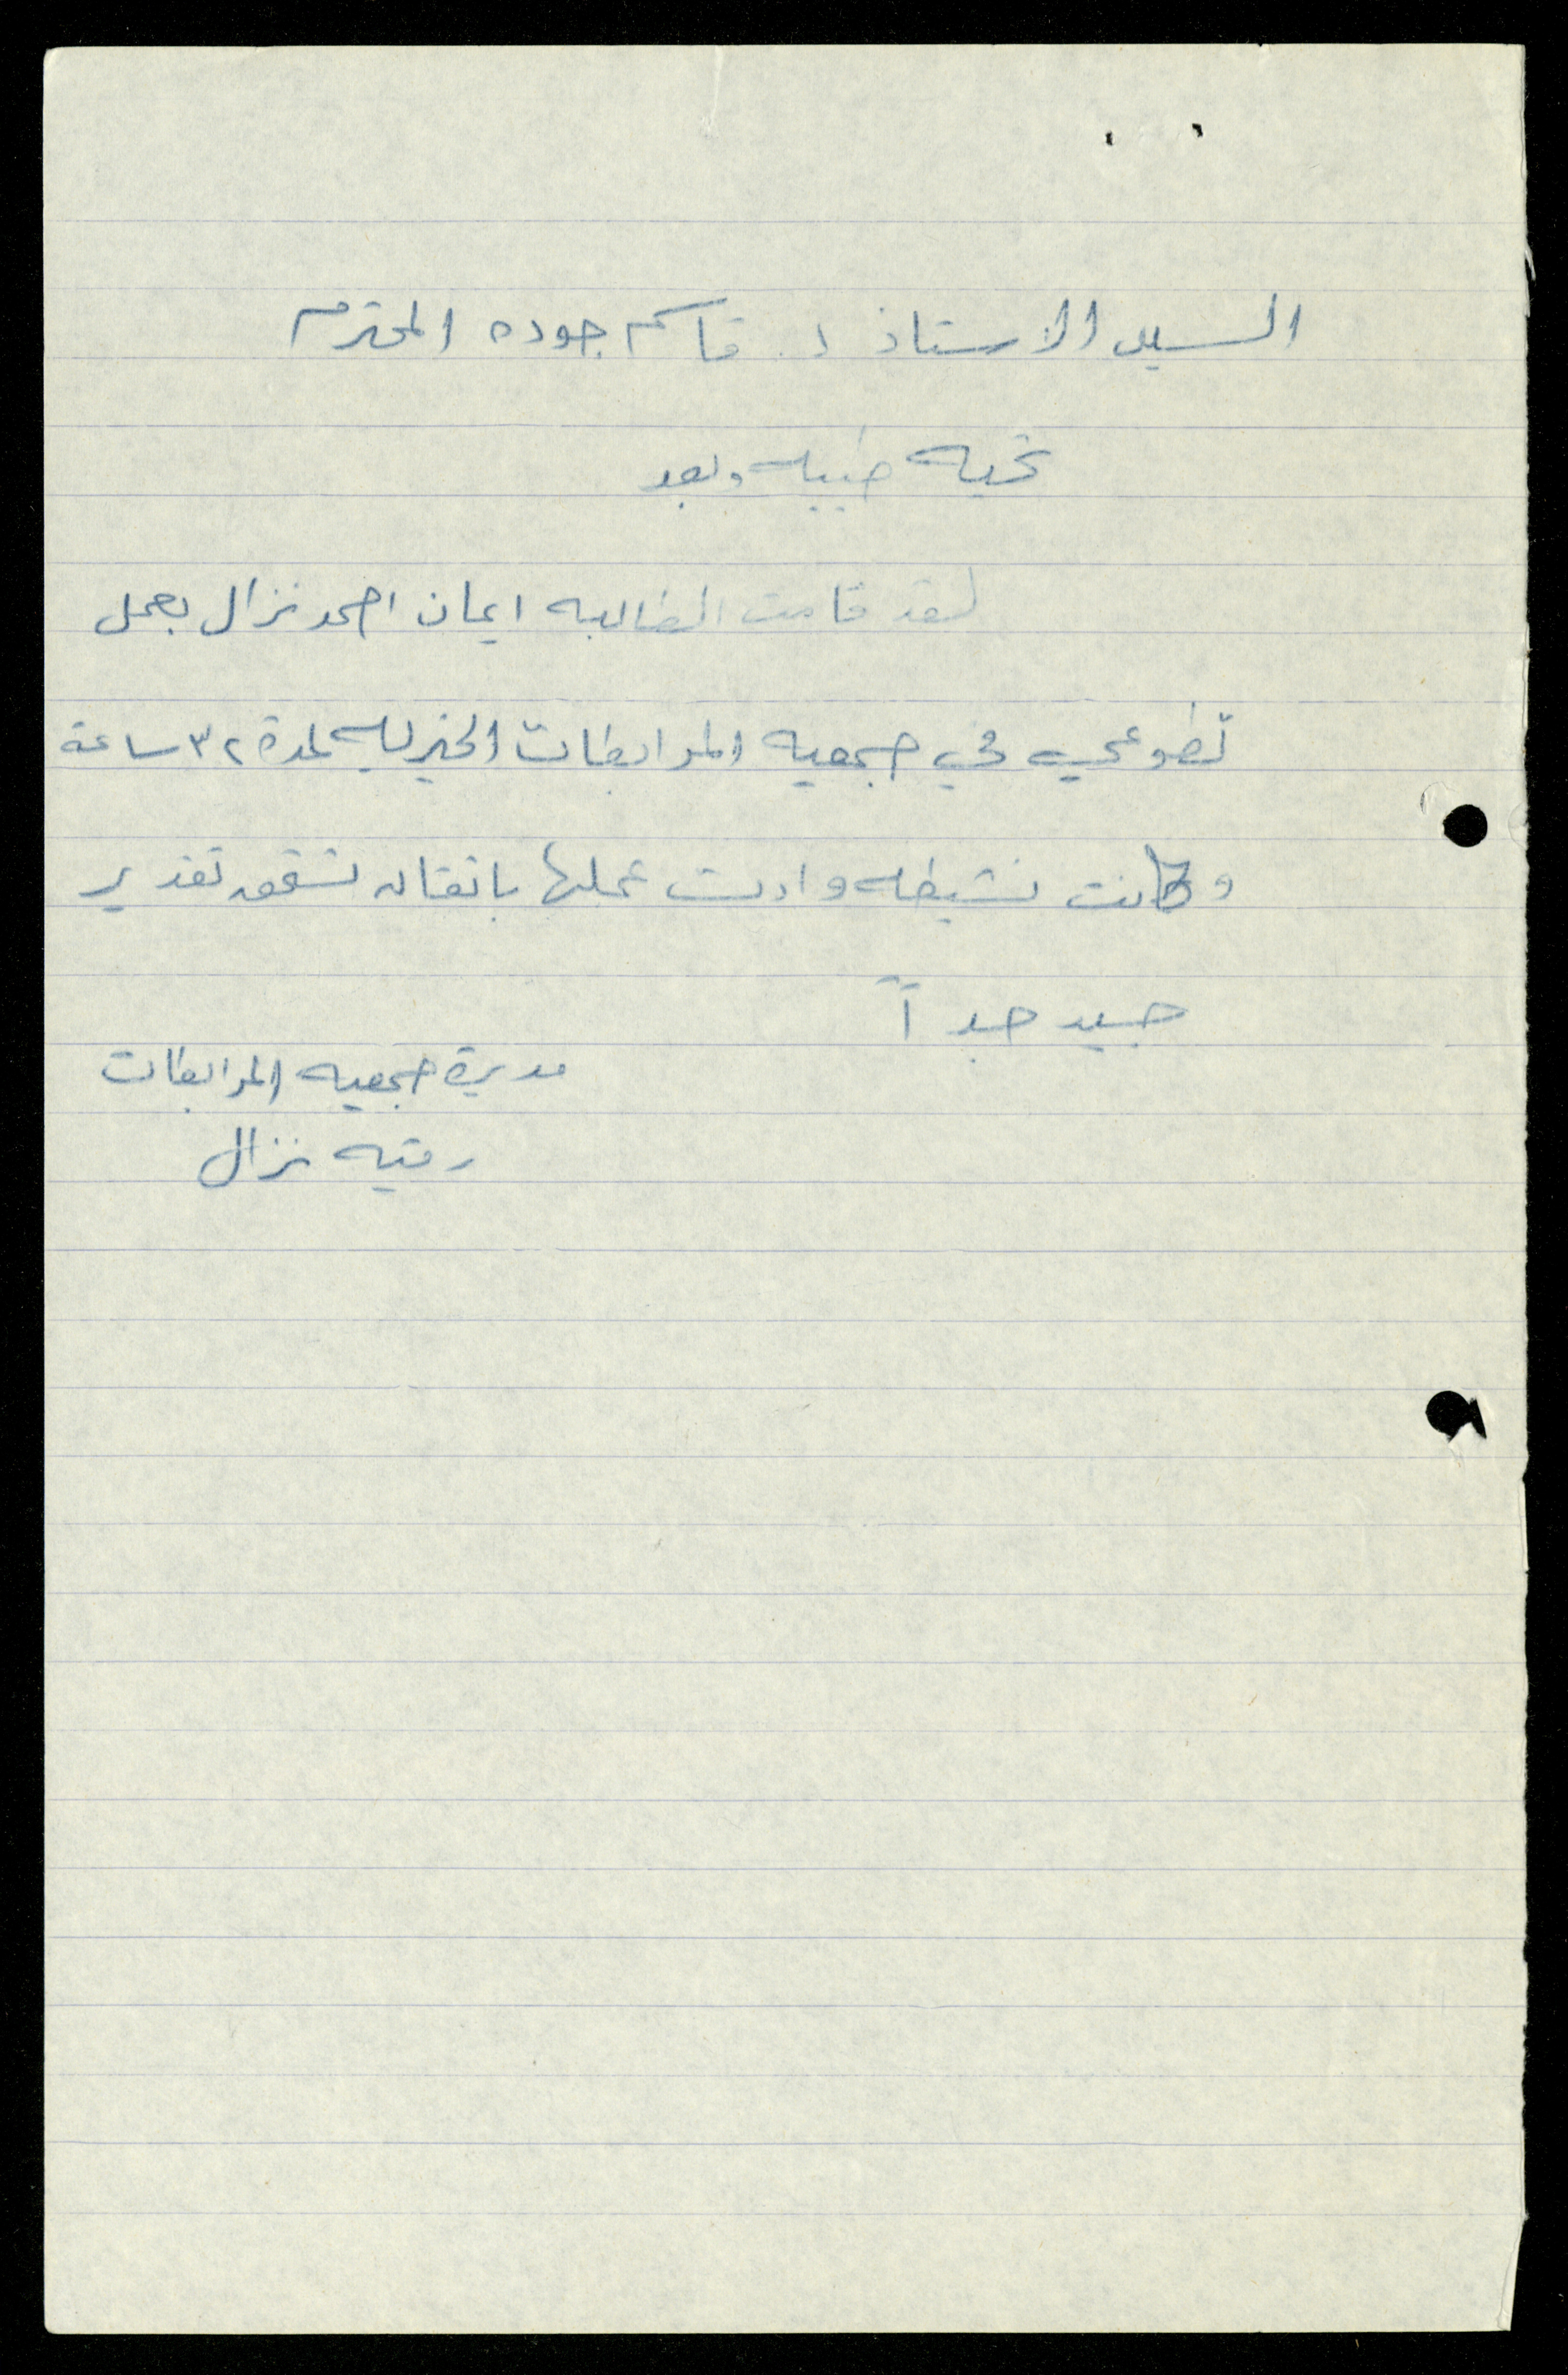 السيد الاستاذ د. قاسم جوده المحترم
تحيه طيبه وبعد
لقد قامت الطالبه ايمان احمد نزال بعمل
تطوعي في جمعيه المرابطات الخيريه لمدة ٣٢ ساعة
وكانت نشيطه وادت عملها باتقان تستحق تقدير
جيد جداً
مديرة جمعيه المرابطات
رقيه نزال